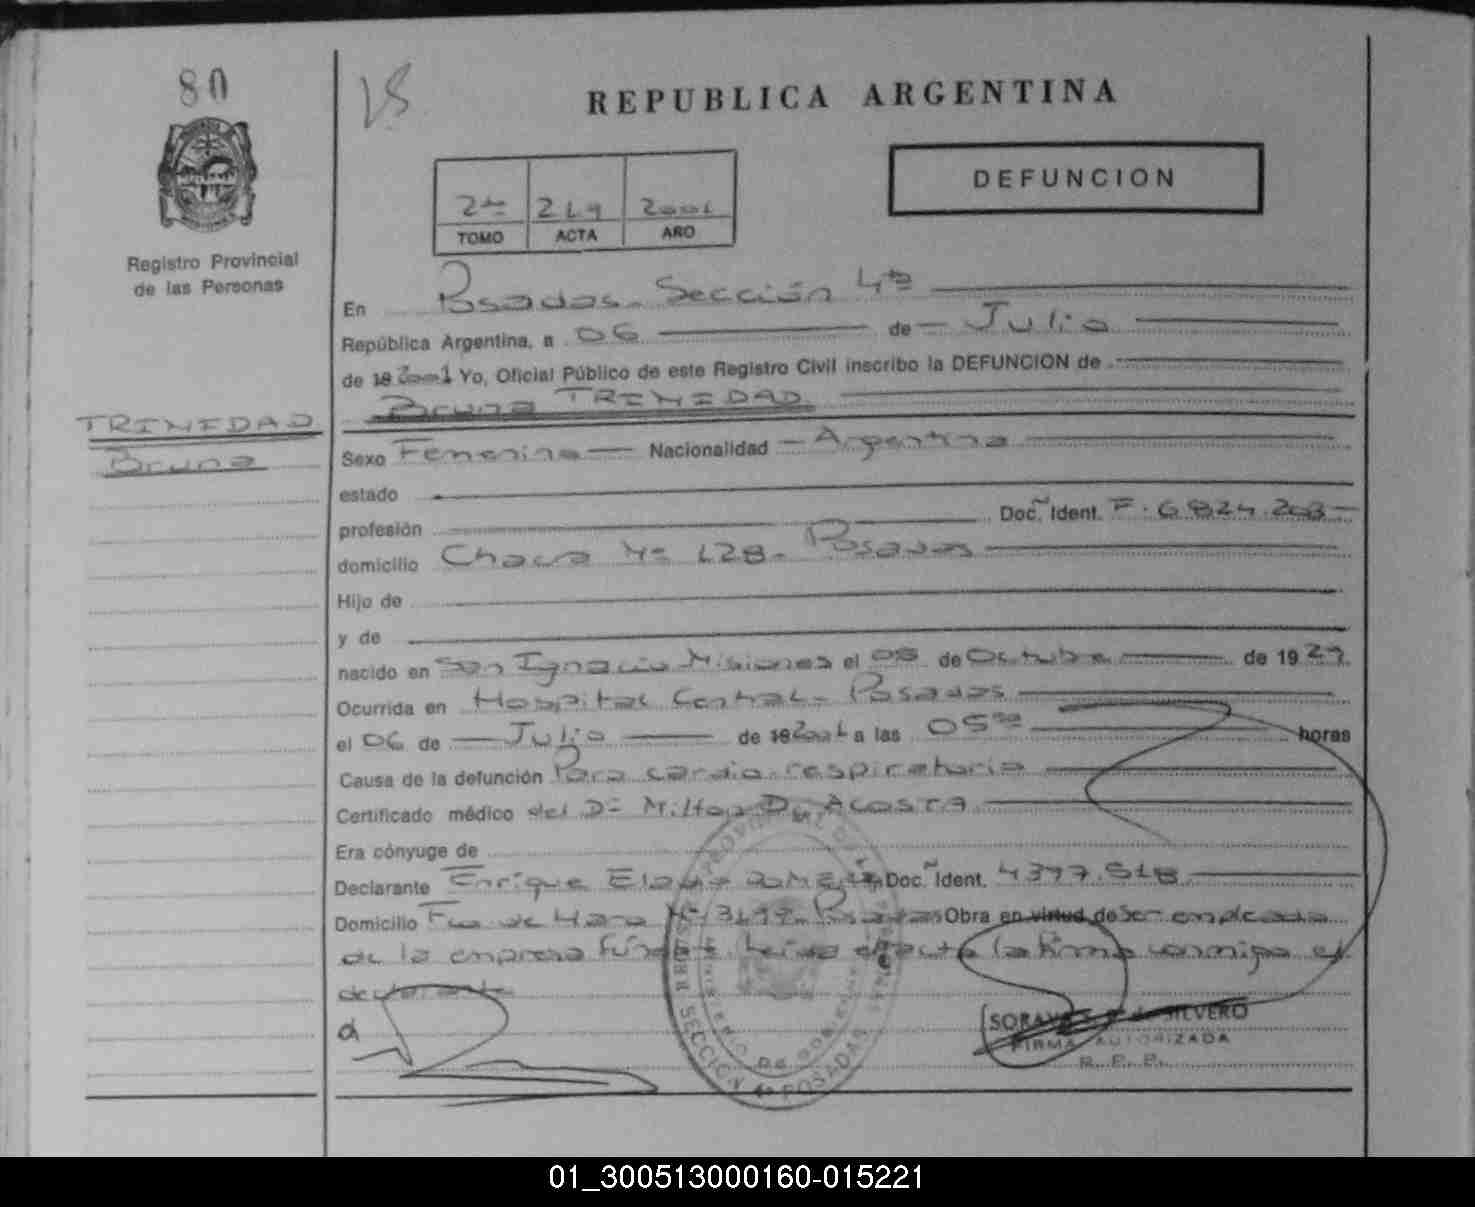 80
REPUBLICA ARGENTINA
DEFUNCION
2do 219 2001
TOMO ACTA AÑO
Registro Provincial
de las Personas
En Posadas - Sección 4ta
República Argentina, a 06 de Julio
de 19 2001 Yo, Oficial Público de este Registro Civil inscribo la DEFUNCION de
Bruna TRINIDAD
TRINIDAD
Bruna
Sexo Femenino Nacionalidad Argentina
estado
profesión Doc. Ident. F. 6.824.203
domicilio Chacra Nº 128 - Posadas
Hijo de
y de
nacido en San Ignacio Misiones el 08 de Octubre de 1929
Ocurrida en Hospital Central - Posadas
el 06 de Julio de 19 2001 a las 05 horas
Causa de la defunción Paro cardio-respiratorio
Certificado médico del Dr Milton D. ACOSTA
Era cónyuge de
Declarante Enrique Doc. Ident. 4397.518
Domicilio Fco de Haro Nº Posadas Obra en virtud de Ser empleado
de la empresa Leída el acta la firma conmigo el
declarante
REGISTRO PROVINCIAL DE LAS PERSONAS
MINISTERIO DE GOBIERNO
SECCION 4a POSADAS
SILVERO
FIRMA AUTORIZADA
R. P. P.
01_300513000160-015221